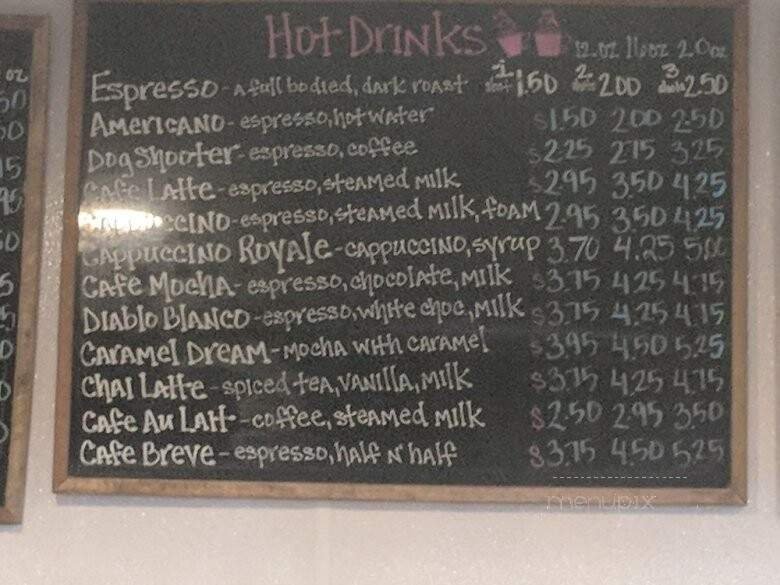 Hot Drinks 12 oz 16 oz 20 oz
Espresso - A full bodied, dark roast 1 shot 1.50 2 shots 2.00 3 shots 2.50
Americano - espresso, hot water $1.50 2.00 2.50
Dog Shooter - espresso, coffee $2.25 2.75 3.25
Cafe Latte - espresso, steamed milk $2.95 3.50 4.25
Cappuccino - espresso, steamed milk, foam 2.95 3.50 4.25
Cappuccino Royale - cappuccino, syrup 3.70 4.25 5.00
Cafe Mocha - espresso, chocolate, milk $3.75 4.25 4.75
Diablo Blanco - espresso, white choc, milk $3.75 4.25 4.75
Caramel Dream - mocha with caramel $3.95 4.50 5.25
Chai Latte - spiced tea, vanilla, milk $3.75 4.25 4.75
Cafe Au Lait - coffee, steamed milk $2.50 2.95 3.50
Cafe Breve - espresso, half n' half $3.75 4.50 5.25
oz
menupix